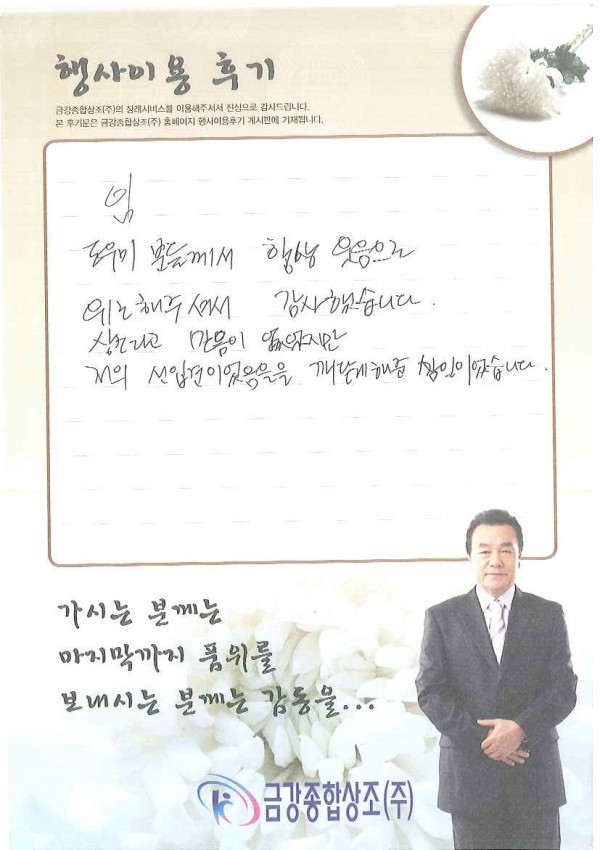 행사이용 후기
금강종합상조(주)의 장례서비스를 이용해주셔서 진심으로 감사드립니다.
본 후기문은 금강종합상조(주) 홈페이지 행사이용후기 게시판에 기재됩니다.
임
도우미 분들께서 항상 웃음으로
위로해주셔서 감사했습니다.
상조라고 믿음이 없었지만
저의 선입견이었음을 깨닫게해준 장인이었습니다.
가시는 분께는
마지막까지 품위를
보내시는 분께는 감동을...
금강종합상조(주)